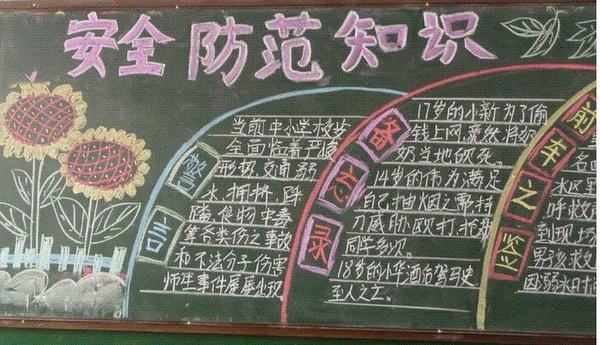 安全防范知识
警言
当前中小学校安
全面临着严峻
形势,交通、溺
水、拥挤、踩
踏、食物中毒
等各类伤亡事故
和不法分子伤害
师生事件屡屡出现
备忘录
17岁的小新为了偷
钱上网,竟然将奶
奶当地砍死。
14岁的伟为满足
自己抽烟之需持
刀威胁殴打,抢劫
同学多次。
18岁的小华酒后驾马史
至人之亡。
前车之鉴
名
水区
呼救
到现场
男孩求救
因溺水